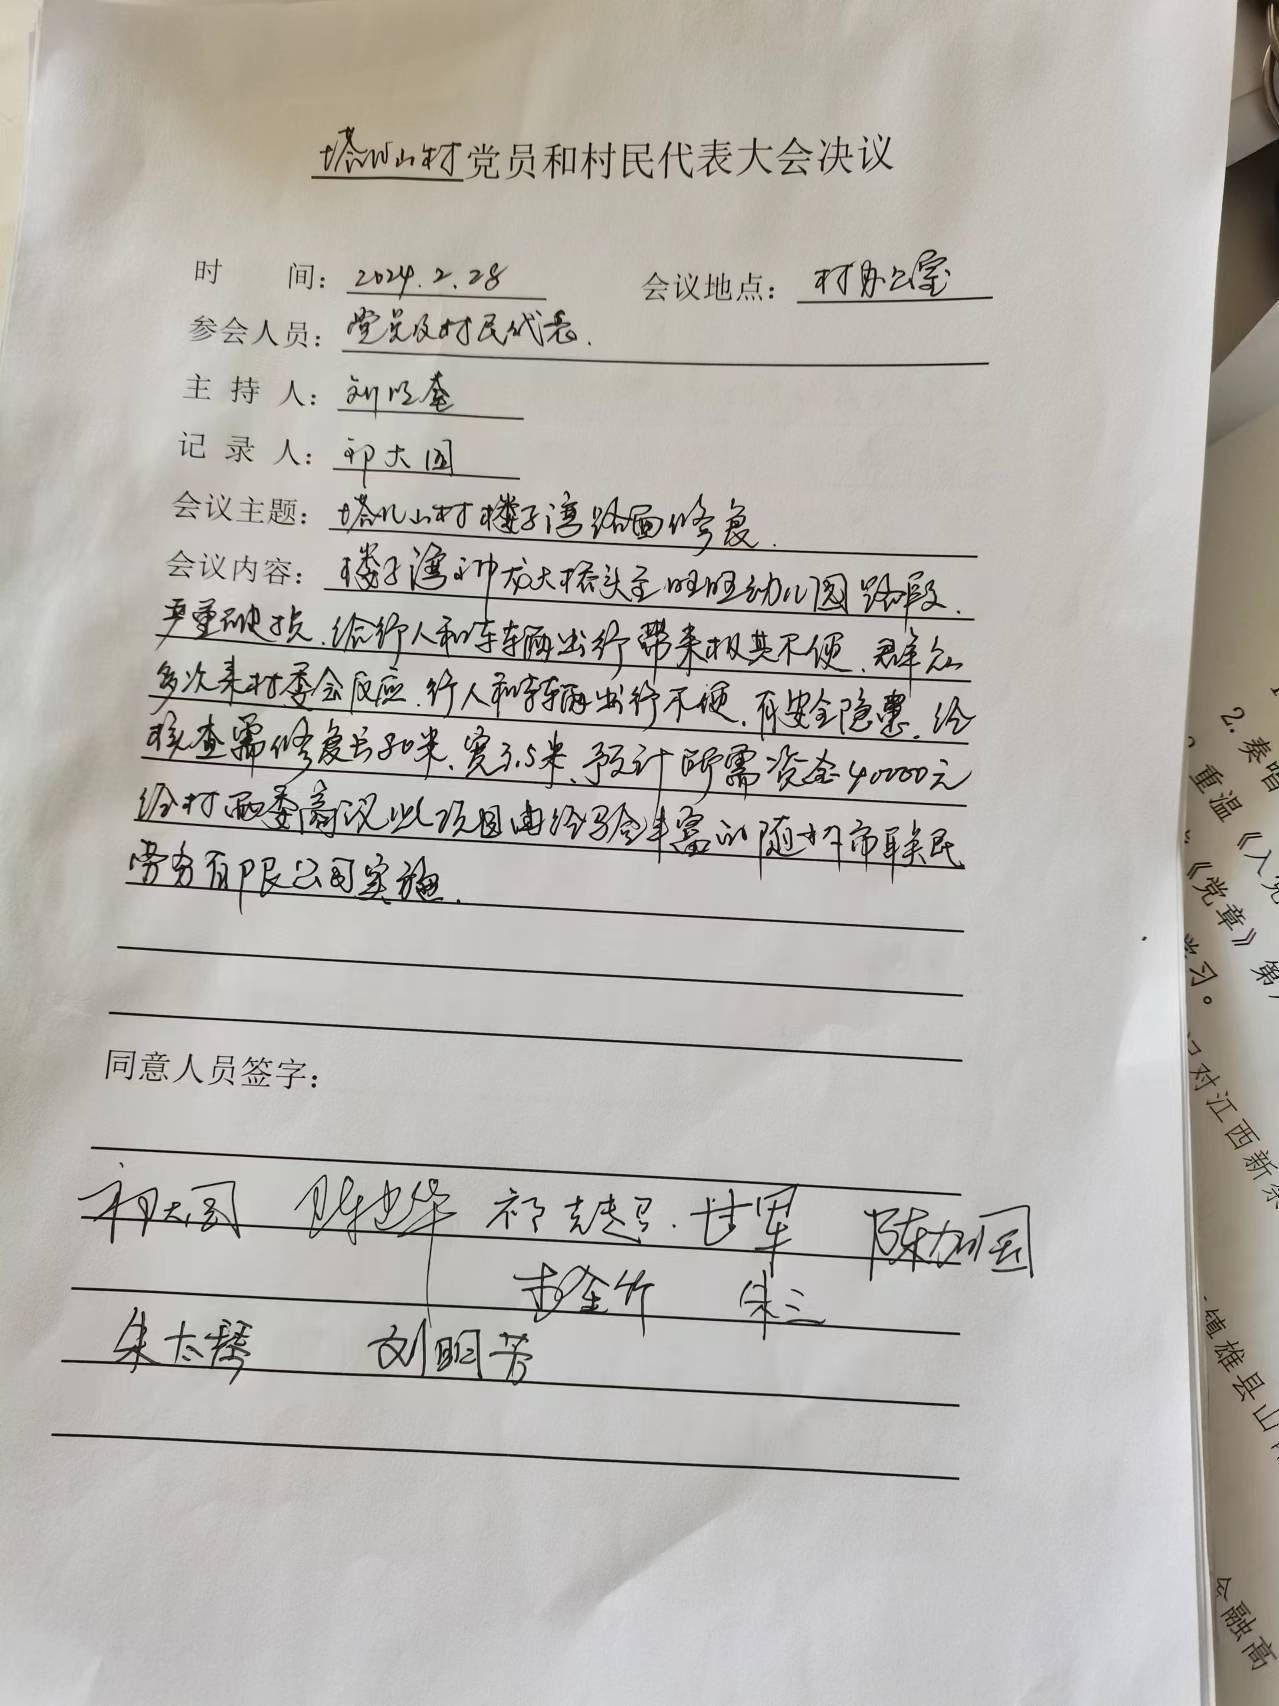 塔儿山村党员和村民代表大会决议
时 间：2024.2.28 会议地点：村办公室
参会人员：党员及村民代表.
主 持 人：刘明奎
记 录 人：祁大国
会议主题：塔儿山村楼子湾路面修复.
会议内容：楼子湾神农大桥头至旺旺幼儿园路段.
严重破损.给行人和车辆出行带来极其不便.群众
多次来村委会反应.行人和车辆出行不便.有安全隐患.经
核查需修复长80米.宽3.5米.预计所需资金40000元
经村两委商议此项目由经验丰富的随州市联民
劳务有限公司实施.
同意人员签字：
祁大国 祁克超 甘军 陈加国
朱三
朱大琴 刘明芳
2.奏唱
重温《入党
《党章》第
学习。
对江西新余
镇雄县山
金融高